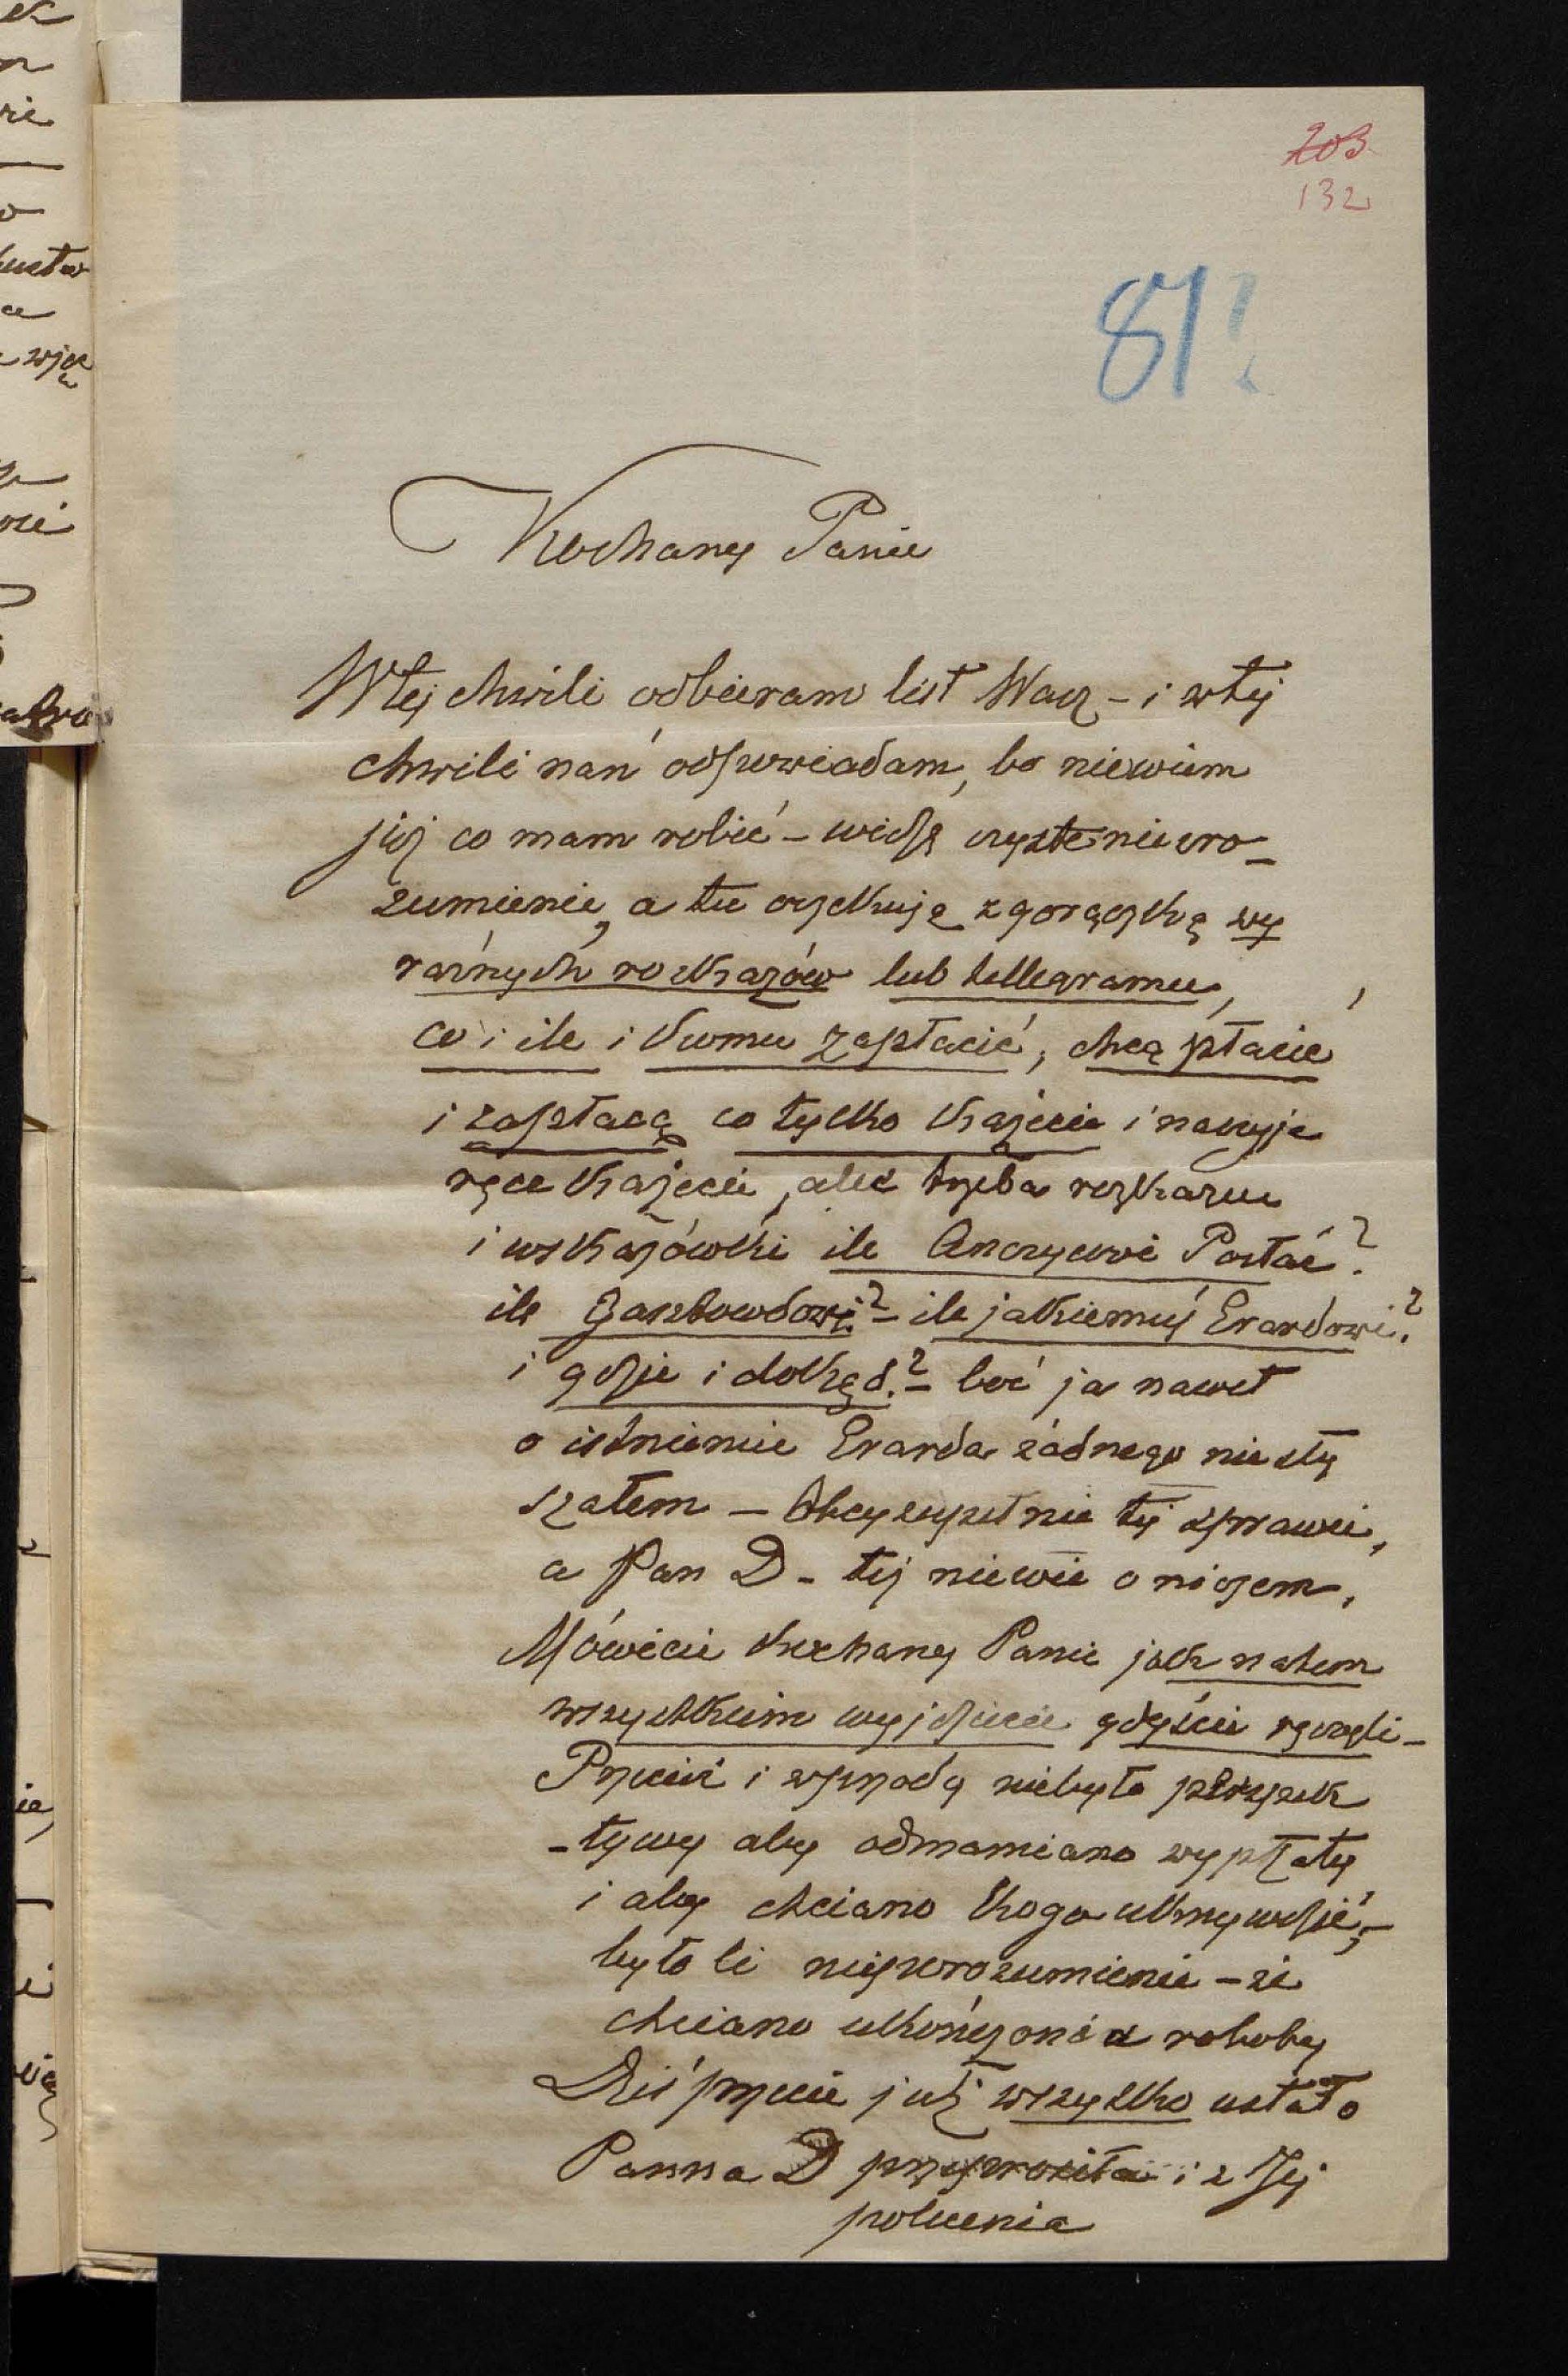 203
132
81?
Kochany Panie
W tej chwili odbieram list Wasz – i w tej
chwili nań odpowiadam, bo niewiem
już co mam robić – widzę czyste nieuro-
zumienie, a tu oczekuję z gorączką wy
raźnych rozkazów lub tellegramu,
co i ile i komu zapłacić, chcą płacić
i zapłacą co tylko każecie i na czyje
ręce każecie, ależ trzeba rozkazu
i wskazówki ile Anczycowi Posłać?
ile – ile jakiemuś Erardowi?
i gdzie i dokąd? – boć ja nawet
o istnienie Erarda żadnego niesły
szałem – Obcy zupełnie tej sprawie,
a Pan D – tej niewie o niczem.
Mówicie Kochany Panie jak na tem
wszystkiem wyjdziecie gdyście ręczyli –
Przecież i wprzody niebyło perspek
-tywy aby odmawiano wypłaty
i aby chciano kogo ukrzywdzić, –
było li nieporozumienie – że
chciano ukończonéj roboty
Dziś przecie już wszystko ustało
Panna D przyprosiła i z Jej
polecenia